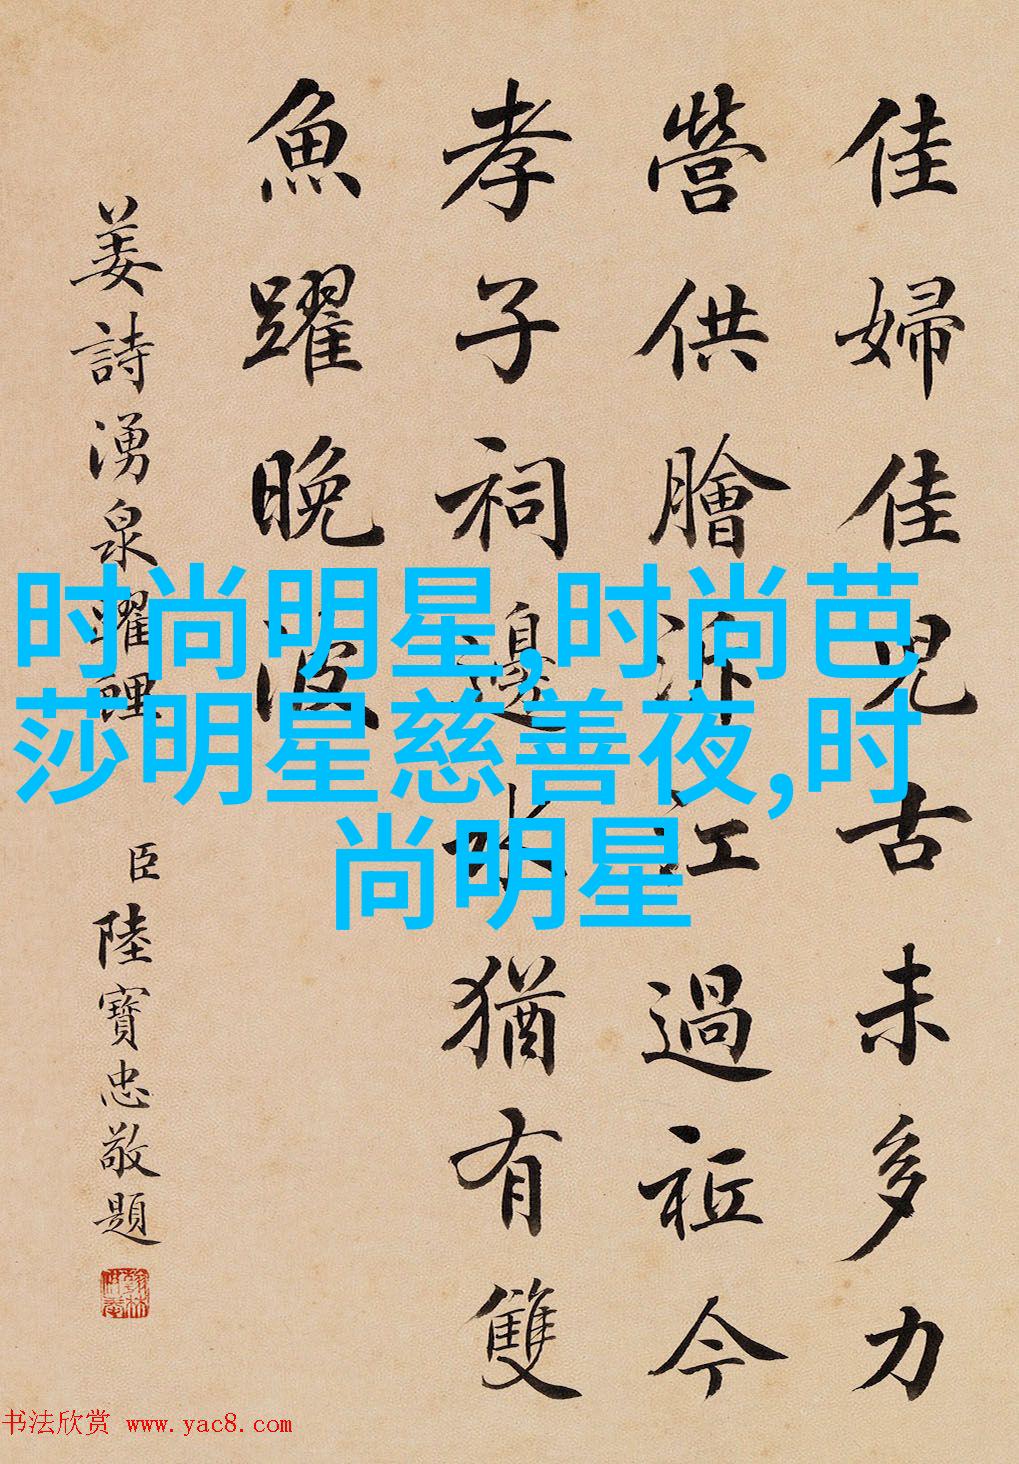 佳婦佳兒古未多力
營供膾泝江過祗今
孝子祠邊水猶有雙
魚躍晚波
姜詩湧泉躍鯉
臣陸寶忠敬題
时尚明星,时尚芭
莎明星慈善夜,时
尚明星
书法欣赏 www.yac8.com